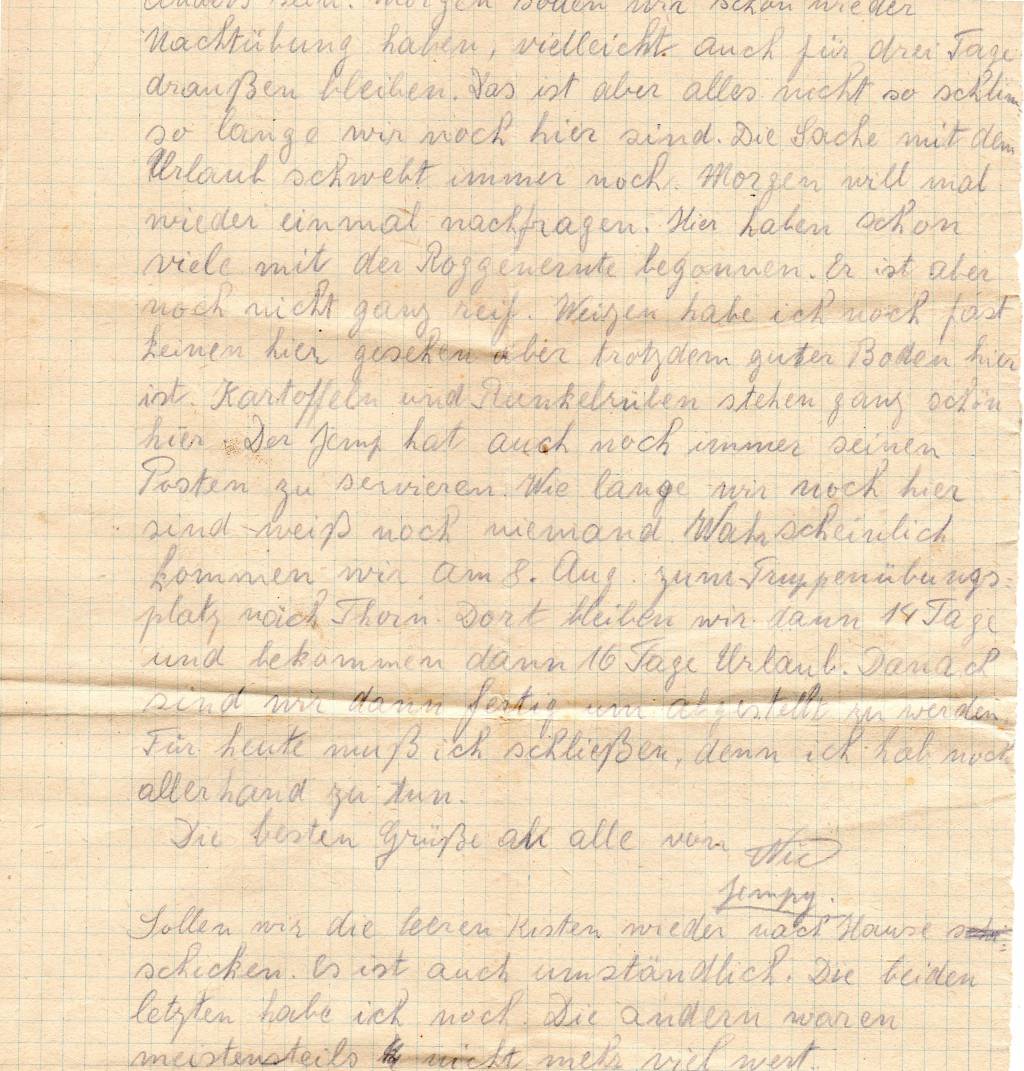 anders sein. Morgen sollen wir schon wieder
Nachtübung haben, vielleicht auch für drei Tage
draußen bleiben. Das ist aber alles nicht so schlim
so lange wir noch hier sind. Die Sache mit dem
Urlaub schwebt immer noch. Morgen will mal
wieder einmal nachfragen. Hier haben schon
viele mit der Roggenernte begonnen. Er ist aber
noch nicht ganz reif. Weizen habe ich noch fast
keinen hier gesehen aber trotzdem guter Boden hier
ist. Kartoffeln und Runkelrüben stehen ganz schön
hier. Der Jemp hat auch noch immer seinen
Posten zu servieren. Wie lange wir noch hier
sind weiß noch niemand. Wahrscheinlich
kommen wir am 8. Aug. zum Truppenübungs-
platz nach Thorn. Dort bleiben wir dann 14 Tage
und bekommen dann 16 Tage Urlaub. Danach
sind wir dann fertig um abgestellt zu werden.
Für heute muß ich schließen, denn ich hab noch
allerhand zu tun.
Die besten Grüße an alle von Nic
Jempy.
Sollen wir die leeren Kisten wieder nach Hause
schicken. Es ist auch umständlich. Die beiden
letzten habe ich noch. Die andern waren
meistensteils nicht mehr viel wert.